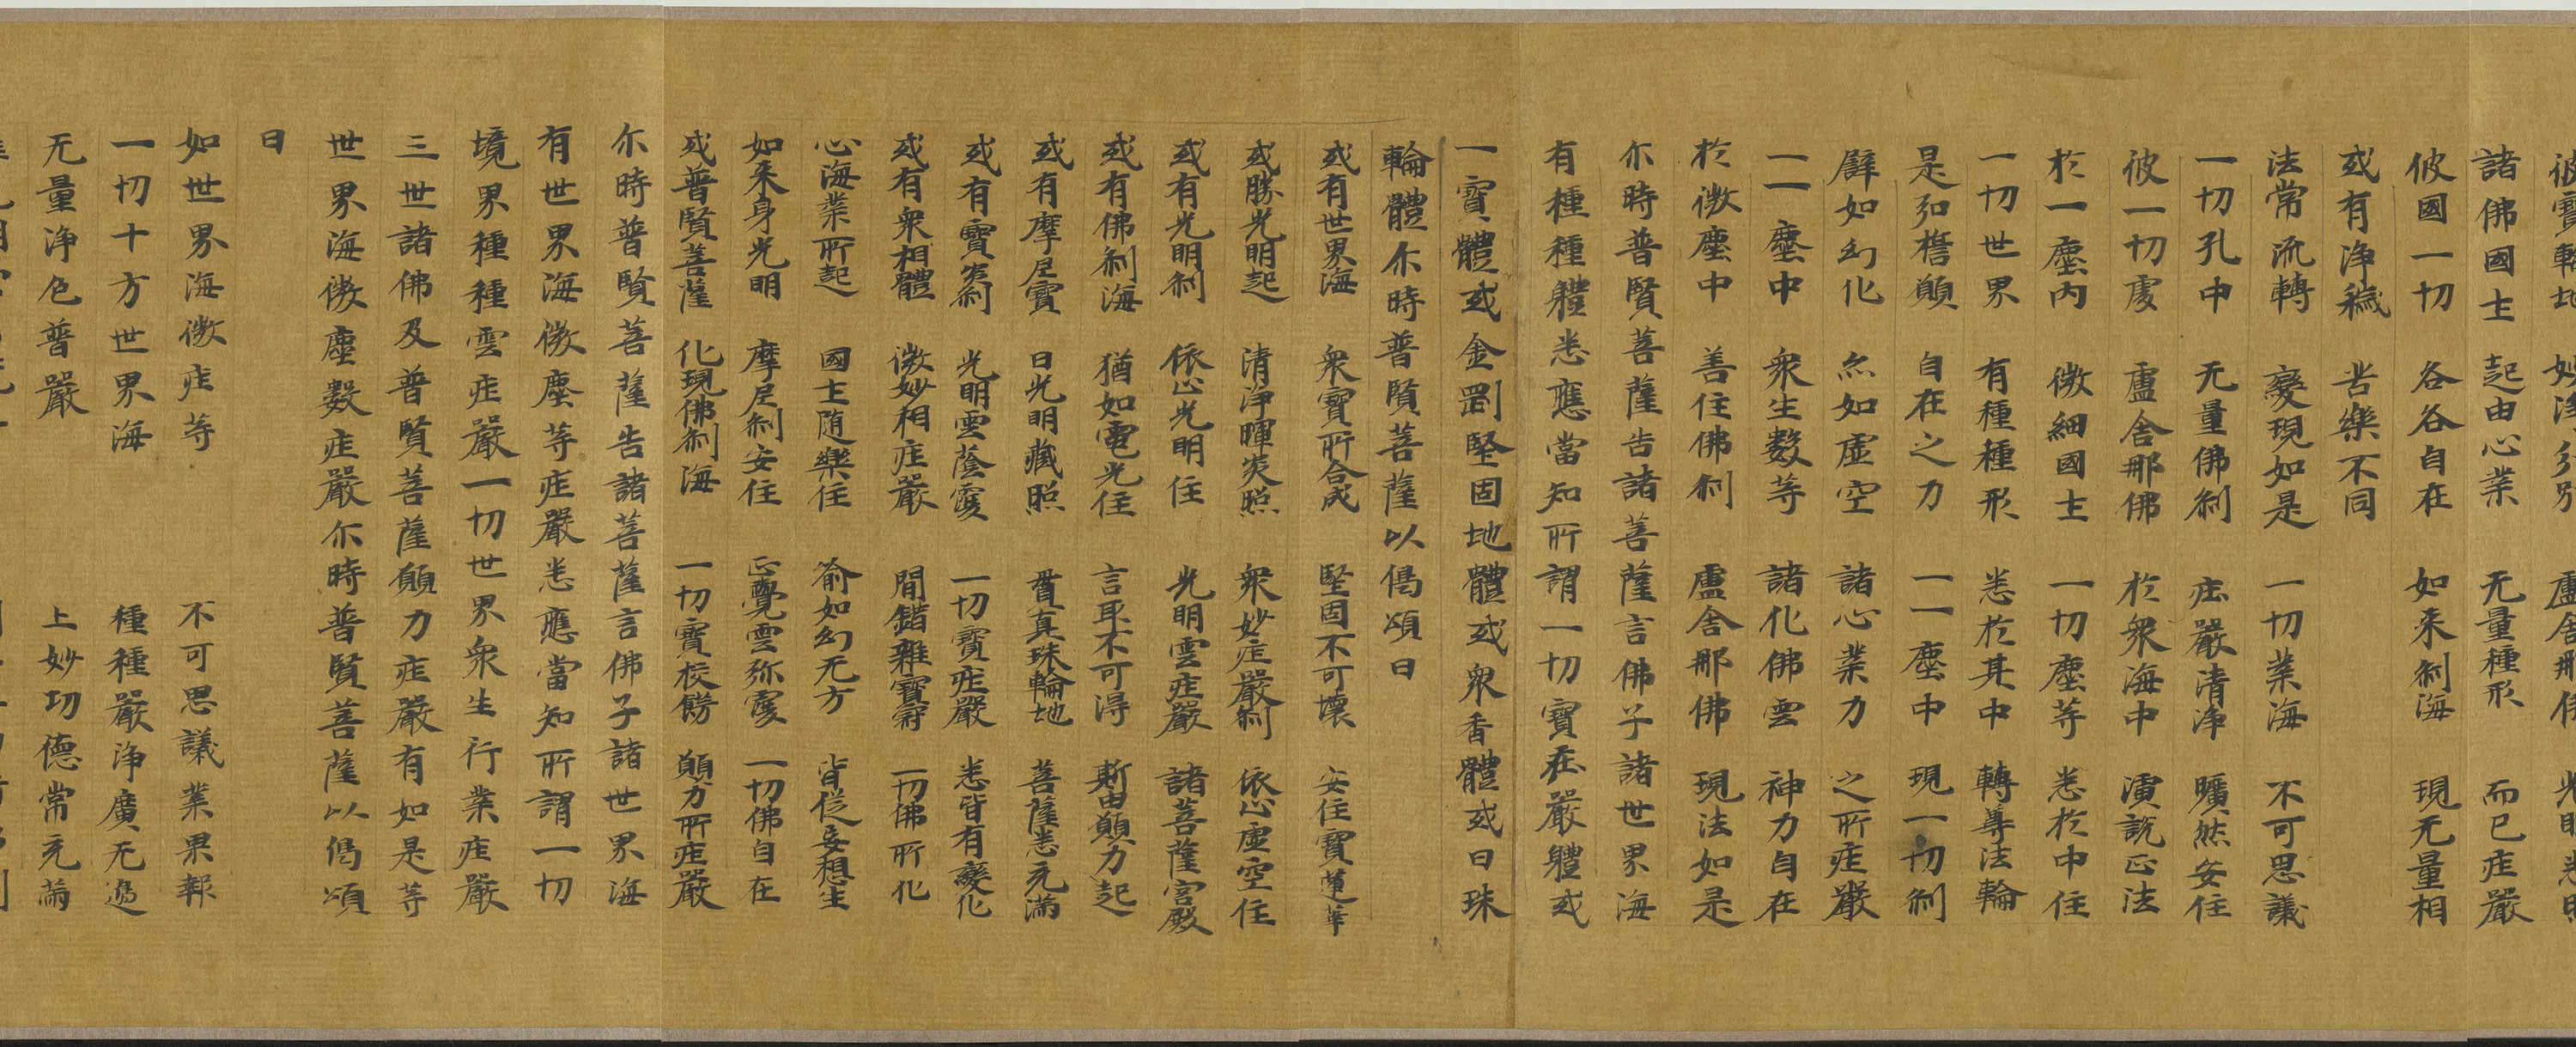 諸佛國土 起由心業 无量種形 而已疰嚴
彼國一切 各各自在 如来刹海 現无量相
或有浄穢 苦樂不同
法常流轉 變現如是 一切業海 不可思議
一切孔中 无量佛刹 疰嚴清浄 曠然安住
彼一切處 盧舍那佛 於衆海中 演說正法
於一塵内 微細國土 一切塵等 悉於中住
一切世界 有種種形 悉於其中 轉尊法輪
是知擔願 自在之力 一一塵中 現一切刹
譬如幻化 亦如虚空 諸心業力 之所疰嚴
一一塵中 衆生數等 諸化佛雲 神力自在
於微塵中 善住佛刹 盧舍那佛 現法如是
尒時普賢菩薩告諸菩薩言佛子諸世界海
有種種體悉應當知所謂一切寶疰嚴體或
一寶體或金剛堅固地體或衆香體或日珠
輪體尒時普賢菩薩以偈頌曰
或有世界海 衆寶所合成 堅固不可壞 安住寶蓮華
或勝光明起 清浄暉炎照 衆妙疰嚴刹 依止虚空住
或有光明刹 依止光明住 光明雲疰嚴 諸菩薩宫殿
或有佛刹海 猶如電光住 言取不可得 斯由願力起
或有摩尼寶 日光明藏照 置真珠輪地 菩薩悉充滿
或有寶炎刹 光明雲蔭覆 一切寶疰嚴 悉皆有變化
或有衆相體 微妙相疰嚴 間錯雜寶冠 一切佛所化
心海業所起 國土随樂住 喻如幻无方 皆從妄想生
如来身光明 摩尼刹安住 正覺雲弥覆 一切佛自在
或普賢菩薩 化現佛刹海 一切寶校餝 願力所疰嚴
尒時普賢菩薩告諸菩薩言佛子諸世界海
有世界海微塵等疰嚴悉應當知所謂一切
境界種種雲疰嚴一切世界衆生行業疰嚴
三世諸佛及普賢菩薩願力疰嚴有如是等
世界海微塵數疰嚴尒時普賢菩薩以偈頌
曰
如世界海微疰等 不可思議業果報
一切十方世界海 種種嚴浄廣无邊
无量浄色普嚴 上妙切德常充滿